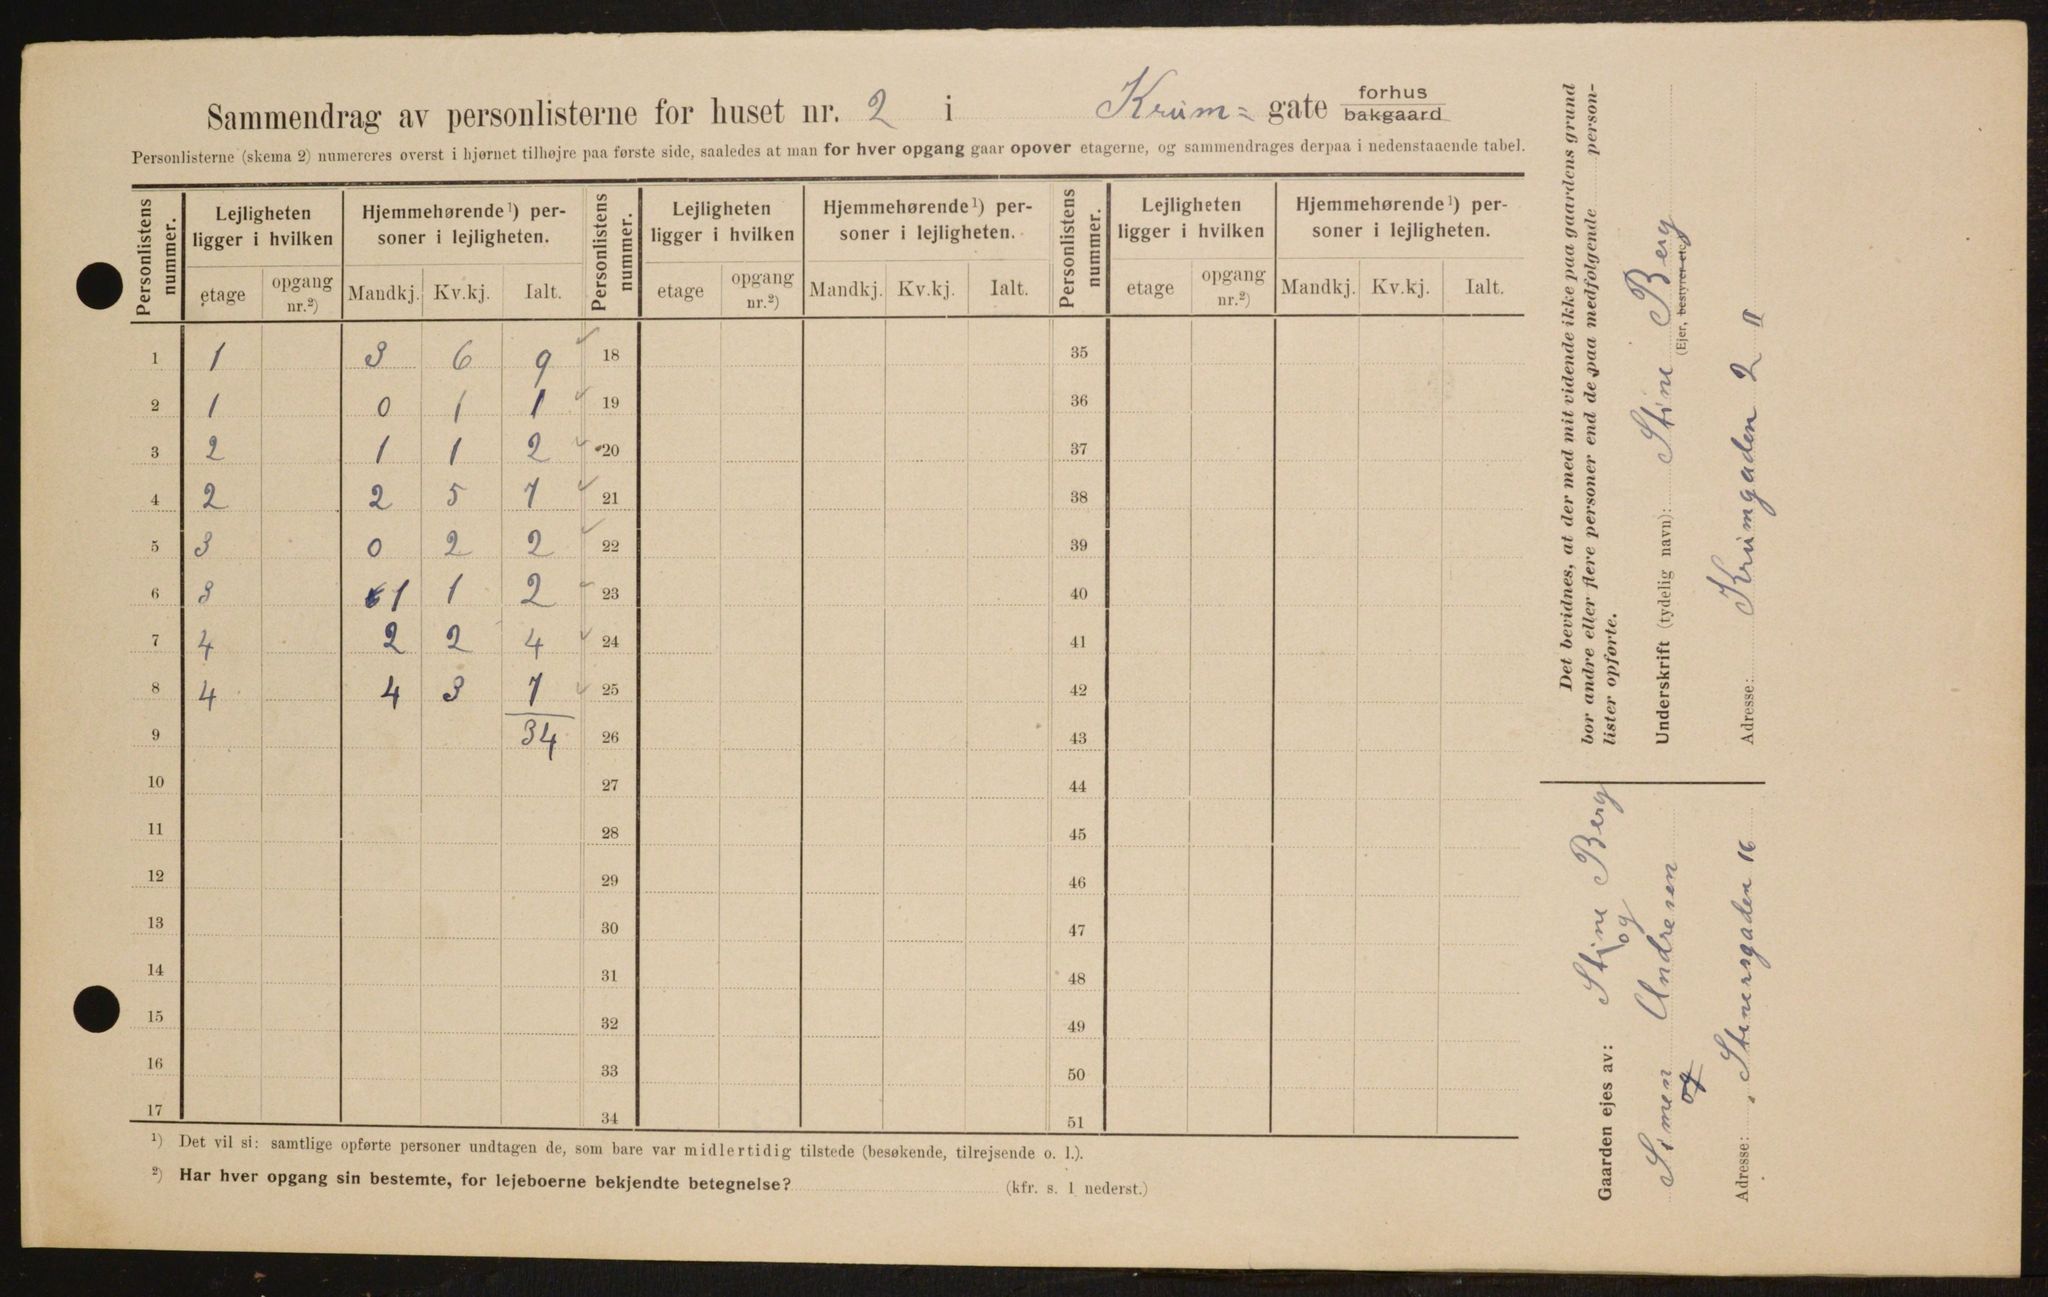 Sammendrag av personlisterne for huset nr. 2 i Krum= gate forhus
bakgaard
Personlisterne (skema 2) numereres øverst i hjørnet tilhøjre paa første side, saaledes at man for hver opgang gaar opover etagerne, og sammendrages derpaa i nedenstaaende tabel.
Personlistens nummer. Lejligheten ligger i hvilken Hjemmehørende¹) personer i lejligheten. Personlistens nummer. Lejligheten ligger i hvilken Hjemmehørende¹) personer i lejligheten. Personlistens nummer. Lejligheten ligger i hvilken Hjemmehørende¹) personer i lejligheten.
etage opgang nr.²) Mandkj. Kv.kj. Ialt. etage opgang nr.²) Mandkj. Kv.kj. Ialt. etage opgang nr.²) Mandkj. Kv.kj. Ialt.
1 1 3 6 9 18 35
2 1 0 1 1 19 36
3 2 1 1 2 20 37
4 2 2 5 7 21 38
5 3 0 2 2 22 39
6 3 1 1 2 23 40
7 4 2 2 4 24 41
8 4 4 3 7 25 42
9 34 26 43
10 27 44
11 28 45
12 29 46
13 30 47
14 31 48
15 32 49
16 33 50
17 34 51
¹) Det vil si: samtlige opførte personer undtagen de, som bare var midlertidig tilstede (besøkende, tilrejsende o. l.).
²) Har hver opgang sin bestemte, for lejeboerne bekjendte betegnelse? (kfr. s. 1 nederst.)
Det bevidnes, at der med mit vidende ikke paa gaardens grund
bor andre eller flere personer end de paa medfølgende person-
lister opførte.
Underskrift (tydelig navn): Stine Berg
(Ejer, bestyrer etc.)
Adresse: Krumgaden 2 II
Gaarden ejes av: Stine Berg
og
Simen Andresen
og
Adresse: Stenersgaden 16